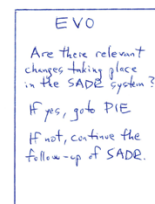 EVO
Are there relevant
changes taking place
in the SADR system?
If yes, goto PIE
If not, continue the
follow-up of SADR.